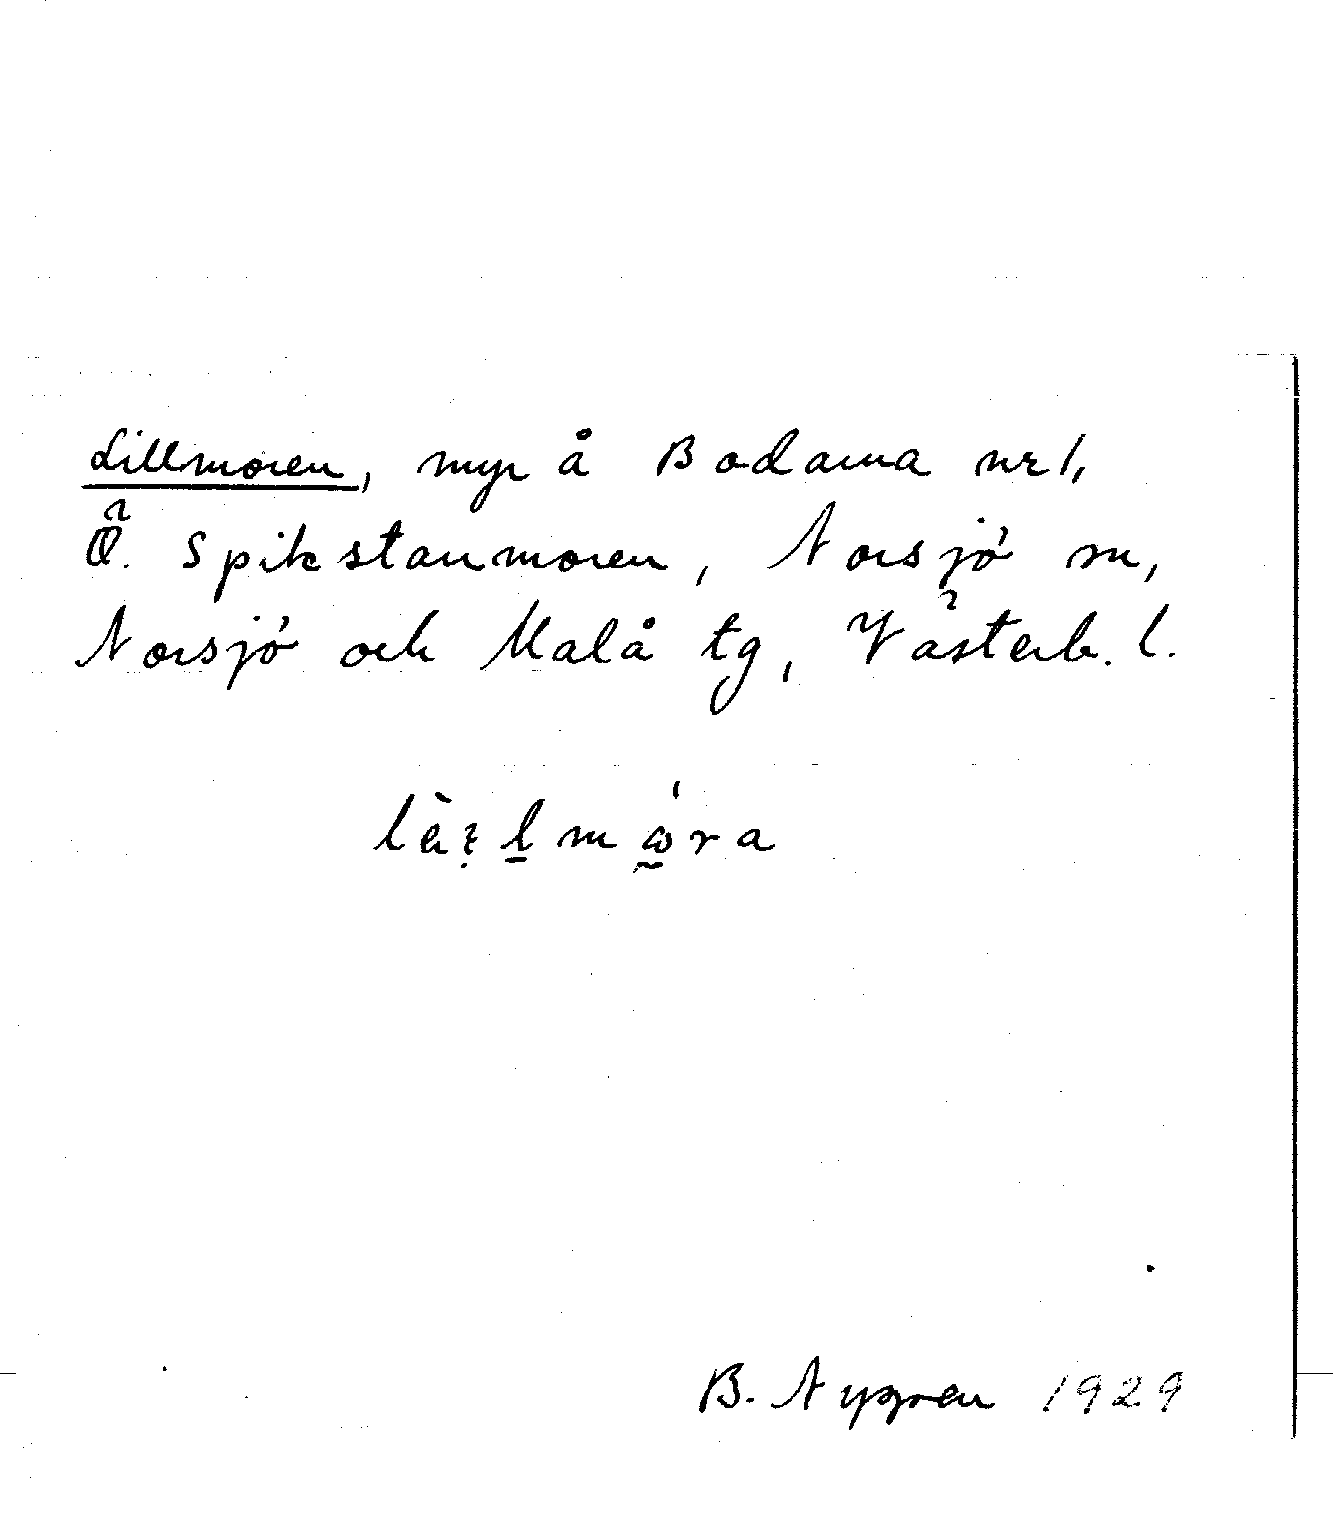 Lillmoren, myr å Bodarna nr 1,
Ö. Spikstanmoren, Norsjö sn,
Norsjö och Malå tg, Västerb. l.
B. Nygren 1929